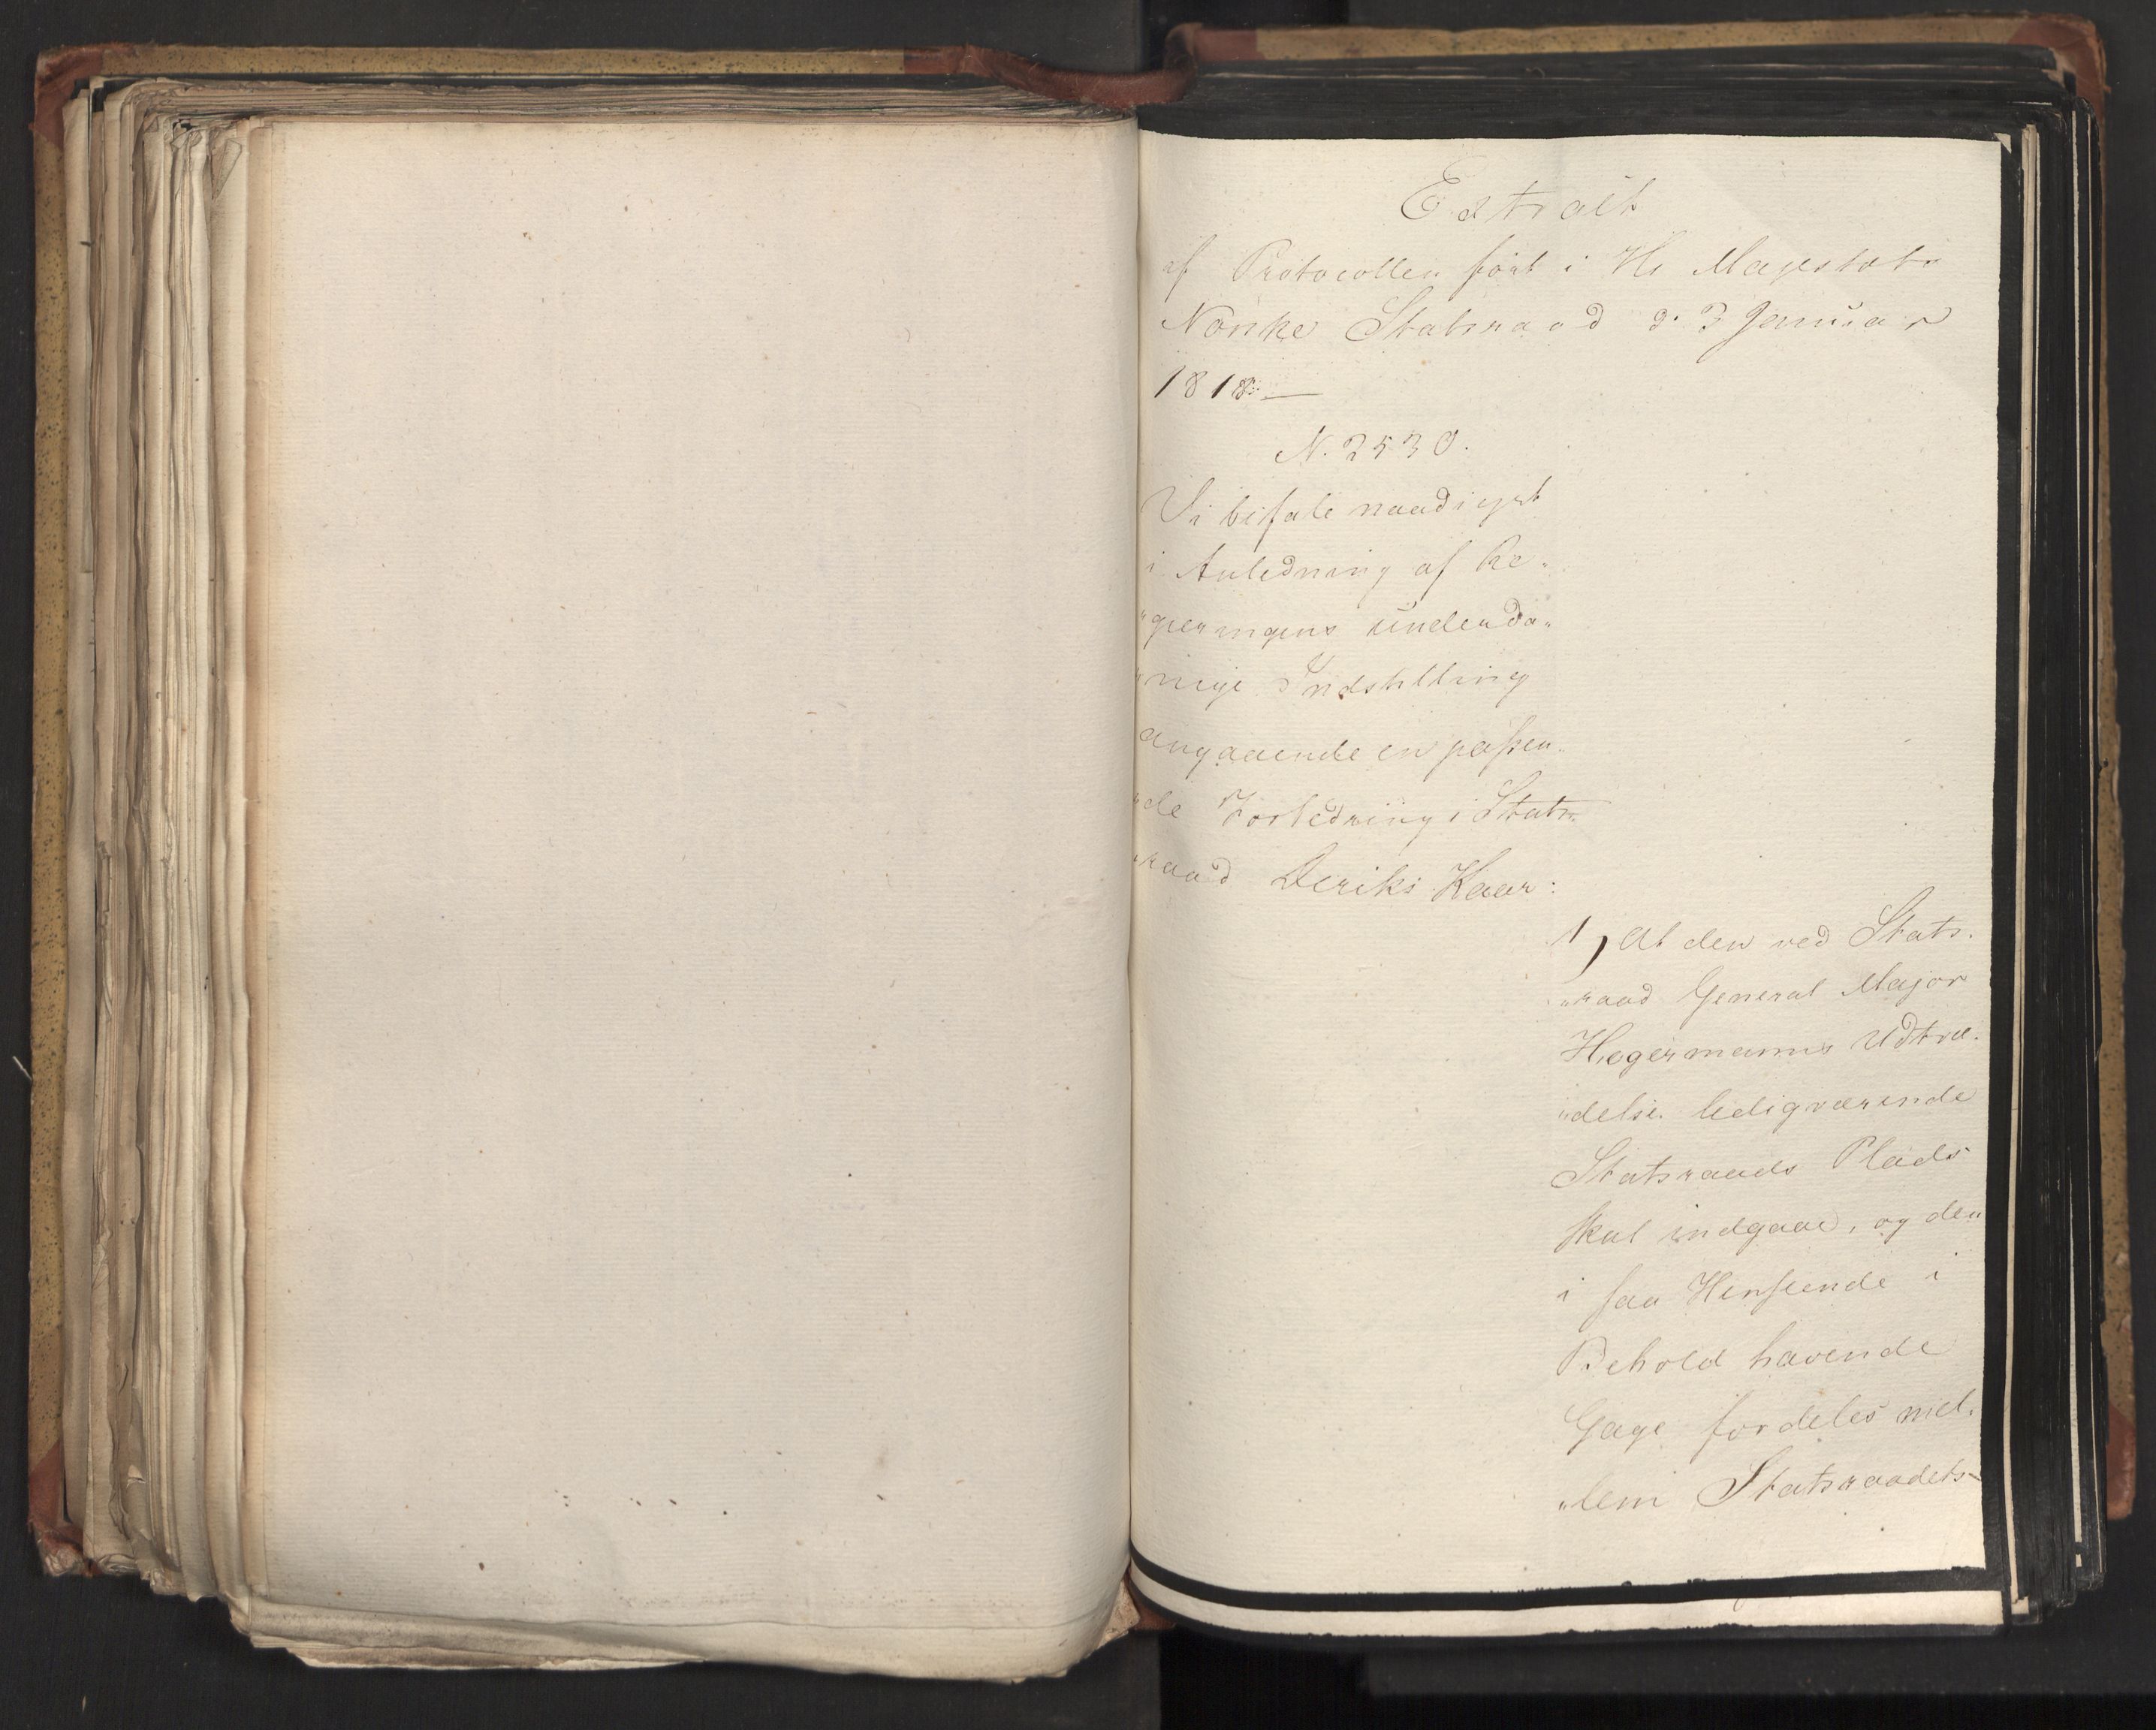 Extract
af Protocollen ført i Hs Majestæts
Norske Statsraad d. 3 Januar
1818.—
N. 2530.
Vi bifale naadigst
i Anledning af Re„
„gieringens underda„
„nige Indstilling
angaaende en passen„
„de Forbedring i Stats„
„raad Aeriks Kaar:
1, At den ved Stats„
„raad General Major
Hegermanns Udtræ„
„delse ledigværende
Statsraads Plads
skal indgaae, og den
i saa Henseende i
Behold havende
Gage fordeles mel„
„lem Statsraadets